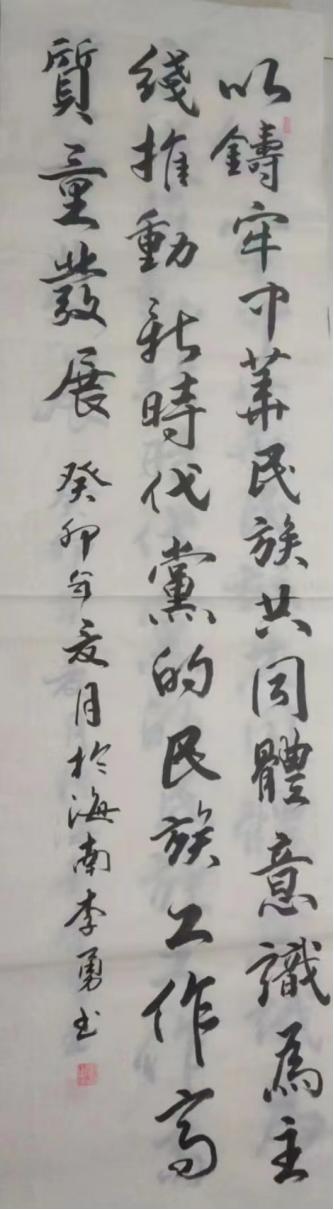 以鑄牢中華民族共同體意識為主
綫推動新時代黨的民族工作高
質量發展
癸卯年夏月於海南李勇書